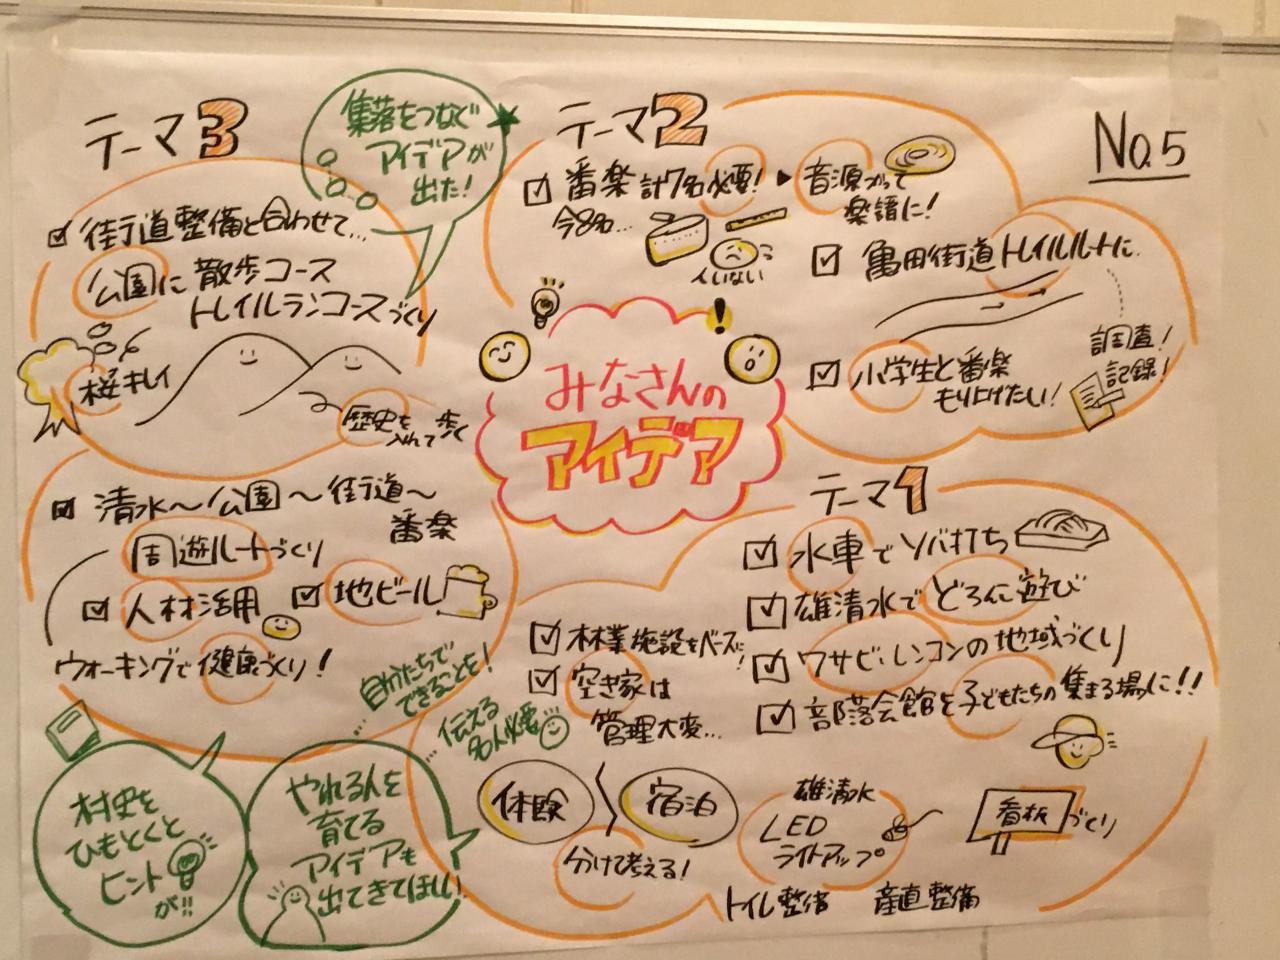 No.5
みなさんの
アイデア
テーマ1
水車でソバ打ち
雄清水でどろんこ遊び
ワサビ・レンコンの地域づくり
部落会館を子どもたちの集まる場に!!
林業施設をベースに!
空き家は
管理大変…
体験
宿泊
分けて考える!
雄清水
LED
ライトアップ
看板づくり
トイレ整備
産直整備
テーマ2
番楽 計7名必要!
今8名…
人いない
音源から
楽譜に!
亀田街道トレイルルートに
調査!
記録!
小学生と番楽
もり上げたい!
テーマ3
街道整備と合わせて…
公園に散歩コース
トレイルランコースづくり
桜キレイ
歴史を
入れて歩く
清水〜公園〜街道〜
番楽
周遊ルートづくり
人材活用
地ビール
ウォーキングで健康づくり!
集落をつなぐ
アイデアが
出た!
自分たちで
できることを!
伝える
名人必要
村史を
ひもとくと
ヒント
が!!
やれる人を
育てる
アイデアも
出てきてほしい!